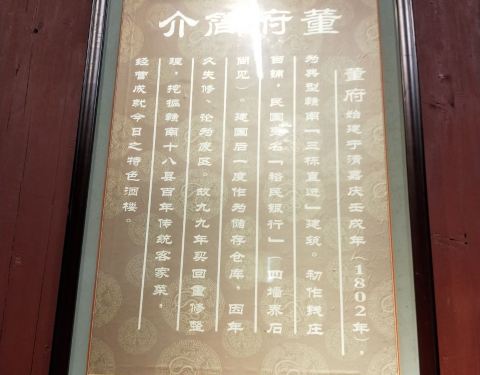 董府简介
董府始建于清嘉庆壬戌年（1802年），
为典型赣南「三标直进」建筑。初作钱庄
当铺，民国更名「裕民银行」（四墙界石
尚见）。建国后一度作为储存仓库，因年
久失修、沦为废区。故九九年买回重修整
理，挖掘赣南十八县百年传统客家菜，
经营成就今日之特色酒楼。